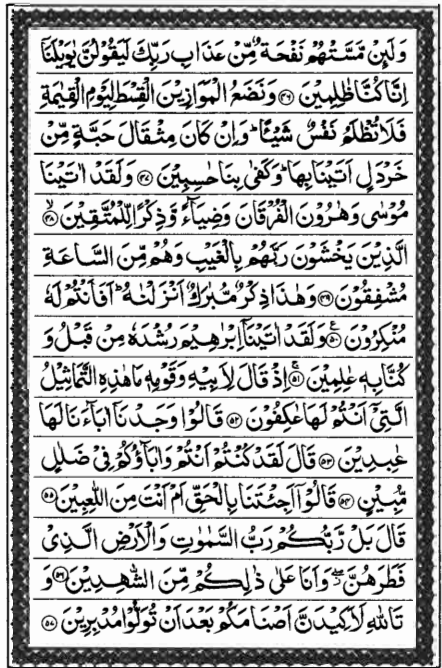 وَلَىِٕنْ مَّسَّتْهُمْ نَفْحَةٌ مِّنْ عَذَابِ رَبِّكَ لَيَقُوْلُنَّ يٰوَيْلَنَاۤ
اِنَّا كُنَّا ظٰلِمِيْنَ ﴿۴۶﴾ وَنَضَعُ الْمَوَازِيْنَ الْقِسْطَ لِيَوْمِ الْقِيٰمَةِ
فَلَا تُظْلَمُ نَفْسٌ شَيْـًٔا ؕ وَاِنْ كَانَ مِثْقَالَ حَبَّةٍ مِّنْ
خَرْدَلٍ اَتَيْنَا بِهَا ؕ وَكَفٰى بِنَا حٰسِبِيْنَ ﴿۴۷﴾ وَلَقَدْ اٰتَيْنَا
مُوْسٰى وَهٰرُوْنَ الْفُرْقَانَ وَضِيَآءً وَّذِكْرًا لِّلْمُتَّقِيْنَ ﴿۴۸﴾ ۙ
الَّذِيْنَ يَخْشَوْنَ رَبَّهُمْ بِالْغَيْبِ وَهُمْ مِّنَ السَّاعَةِ
مُشْفِقُوْنَ ﴿۴۹﴾ وَهٰذَا ذِكْرٌ مُّبٰرَكٌ اَنْزَلْنٰهُ ؕ اَفَاَنْتُمْ لَهٗ
مُنْكِرُوْنَ ﴿۵۰﴾ ع وَلَقَدْ اٰتَيْنَاۤ اِبْرٰهِيْمَ رُشْدَهٗ مِنْ قَبْلُ وَ
كُنَّا بِهٖ عٰلِمِيْنَ ﴿۵۱﴾ ۚ اِذْ قَالَ لِاَبِيْهِ وَقَوْمِهٖ مَا هٰذِهِ التَّمَاثِيْلُ
الَّتِيْۤ اَنْتُمْ لَهَا عٰكِفُوْنَ ﴿۵۲﴾ قَالُوْا وَجَدْنَاۤ اٰبَآءَنَا لَهَا
عٰبِدِيْنَ ﴿۵۳﴾ قَالَ لَقَدْ كُنْتُمْ اَنْتُمْ وَاٰبَآؤُكُمْ فِيْ ضَلٰلٍ
مُّبِيْنٍ ﴿۵۴﴾ قَالُوْۤا اَجِئْتَنَا بِالْحَقِّ اَمْ اَنْتَ مِنَ اللّٰعِبِيْنَ ﴿۵۵﴾
قَالَ بَلْ رَّبُّكُمْ رَبُّ السَّمٰوٰتِ وَالْاَرْضِ الَّذِيْ
فَطَرَهُنَّ ۖ وَاَنَا عَلٰى ذٰلِكُمْ مِّنَ الشّٰهِدِيْنَ ﴿۵۶﴾ وَ
تَاللّٰهِ لَاَكِيْدَنَّ اَصْنَامَكُمْ بَعْدَ اَنْ تُوَلُّوْا مُدْبِرِيْنَ ﴿۵۷﴾